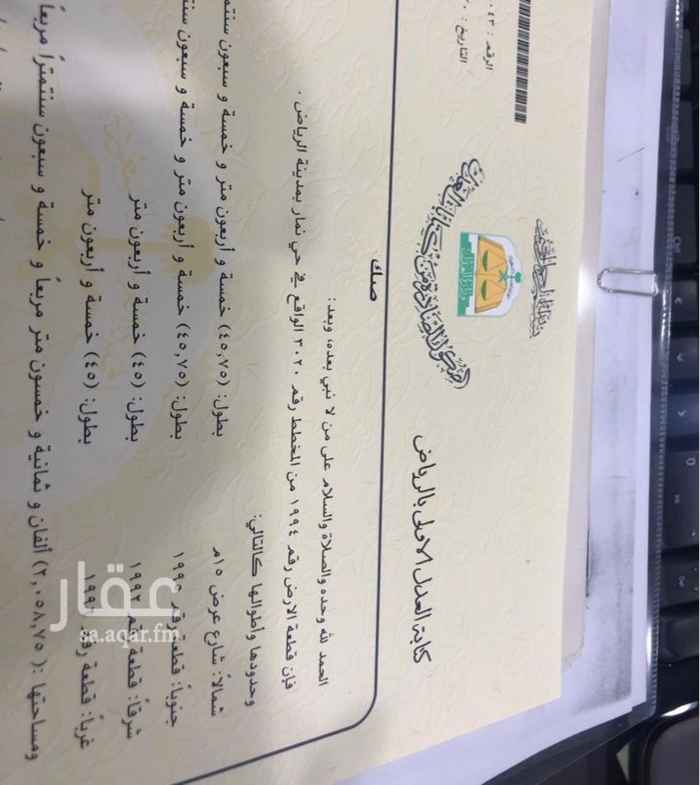 الرقم: ٤٣
التاريخ: ٠
كتابة العدل الأولى بالرياض
صك
الحمد لله وحده والصلاة والسلام على من لا نبي بعده، وبعد:
فإن قطعة الارض رقم ١٩٩٤ من المخطط رقم ٣٠٢٠ الواقع في حي نمار بمدينة الرياض .
وحدودها وأطوالها كالتالي:
شمالاً: شارع عرض ١٥م بطول: (٤٥,٧٥) خمسة و أربعون متر و خمسة و سبعون سنتم
جنوباً: قطعة رقم ١٩٩ بطول: (٤٥,٧٥) خمسة و أربعون متر و خمسة و سبعون سنت
شرقاً: قطعة رقم ١٩٩٢ بطول: (٤٥) خمسة و أربعون متر
غرباً: قطعة رقم ١٩٩ بطول: (٤٥) خمسة و أربعون متر
ومساحتها :( ٢,٠٥٨,٧٥) ألفان و ثمانية و خمسون متر مربعاً و خمسة و سبعون سنتمتراً مربعاً
عقار
sa.aqar.fm